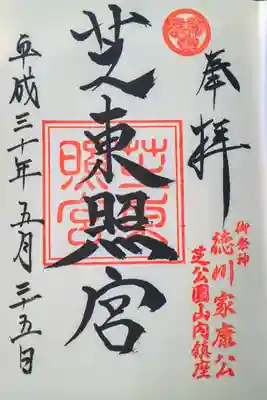 奉拝
御祭神
徳川家康公
芝公園山内鎮座
芝東照宮
芝東
照宮
平成三十年五月二五日